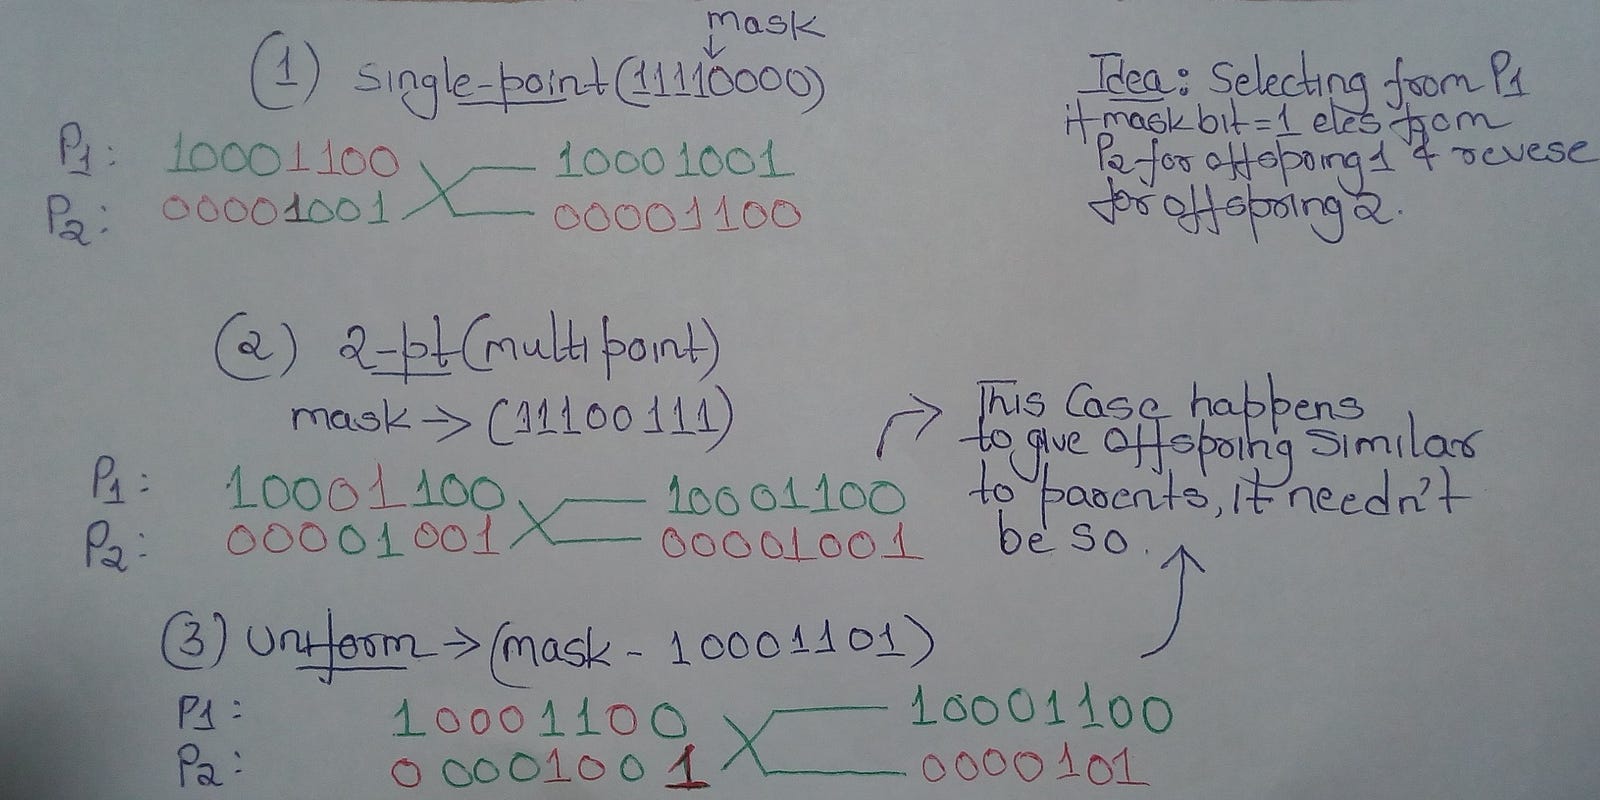 mask
↓
(1) Single-point (11110000)
P1: 10001100 10001001
P2: 00001001 00001100
Idea: Selecting from P1
if mask bit=1 eles from
P2 for offspoing 1 & revese
for offspring 2.
(2) 2-pt (multi point)
mask → (11100111)
P1: 10001100 10001100
P2: 00001001 00001001
This Case happens
to give offspoing similar
to parents, it needn't
be so.
(3) Uniform → (mask - 10001101)
P1: 10001100 10001100
P2: 00001001 0000101